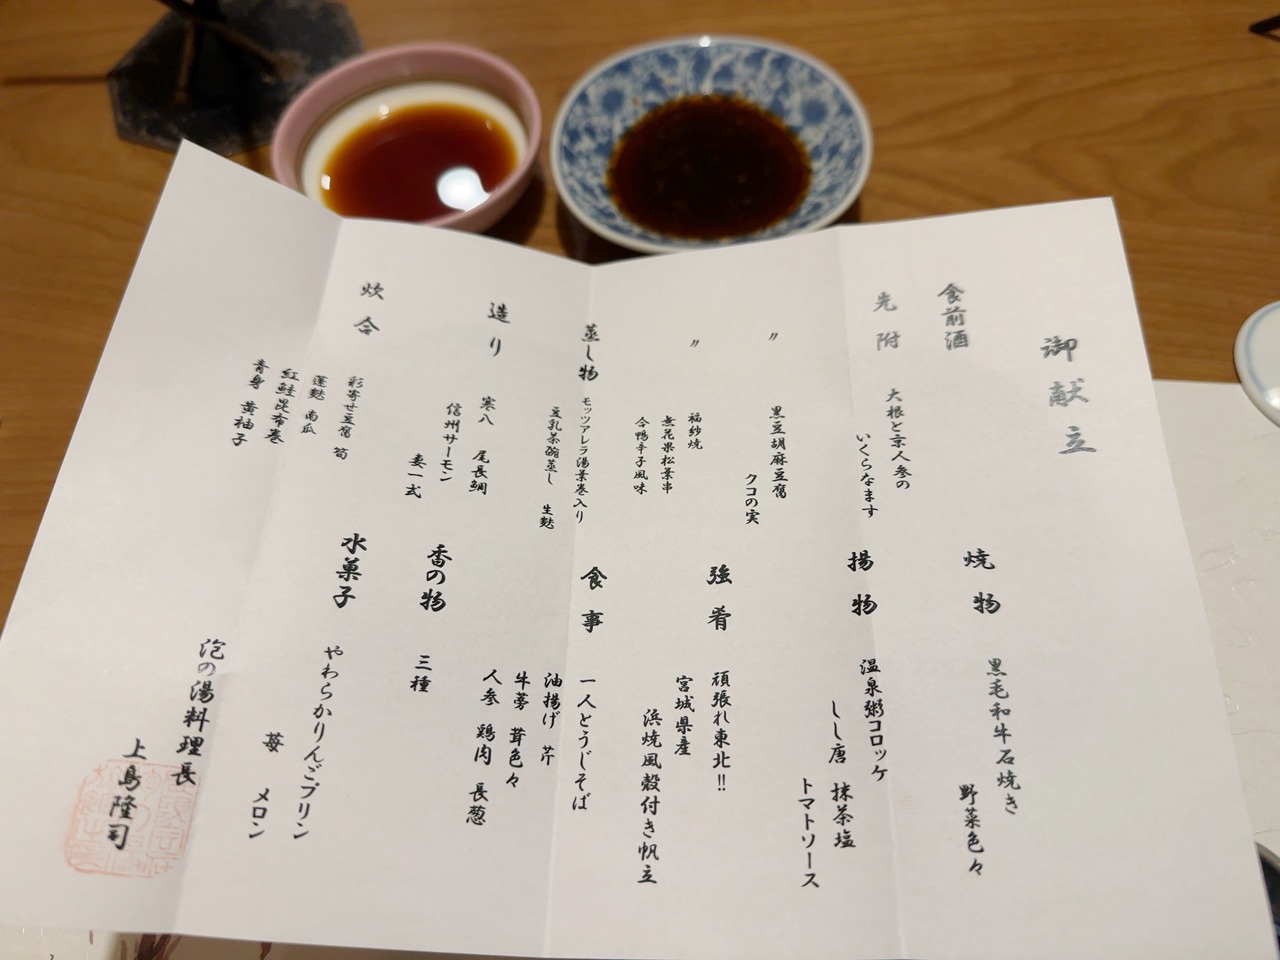 御献立
食前酒
先附
大根と京人参の
いくらなます
〃
黒豆胡麻豆腐
クコの実
〃
福紗焼
無花果松葉串
合鴨辛子風味
蒸し物
モッツアレラ湯葉巻入り
豆乳茶碗蒸し 生麩
造り
寒八 尾長鯛
信州サーモン
妻一式
炊合
彩寄せ豆腐 筍
蓬麩 南瓜
紅鮭昆布巻
青身 黄柚子
焼物
黒毛和牛石焼き
野菜色々
揚物
温泉粥コロッケ
しし唐 抹茶塩
トマトソース
強肴
頑張れ東北!!
宮城県産
浜焼風殻付き帆立
食事
一人とうじそば
油揚げ 芹
牛蒡 茸色々
人参 鶏肉 長葱
香の物
三種
水菓子
やわらかりんごプリン
苺 メロン
泡の湯料理長
上島隆司